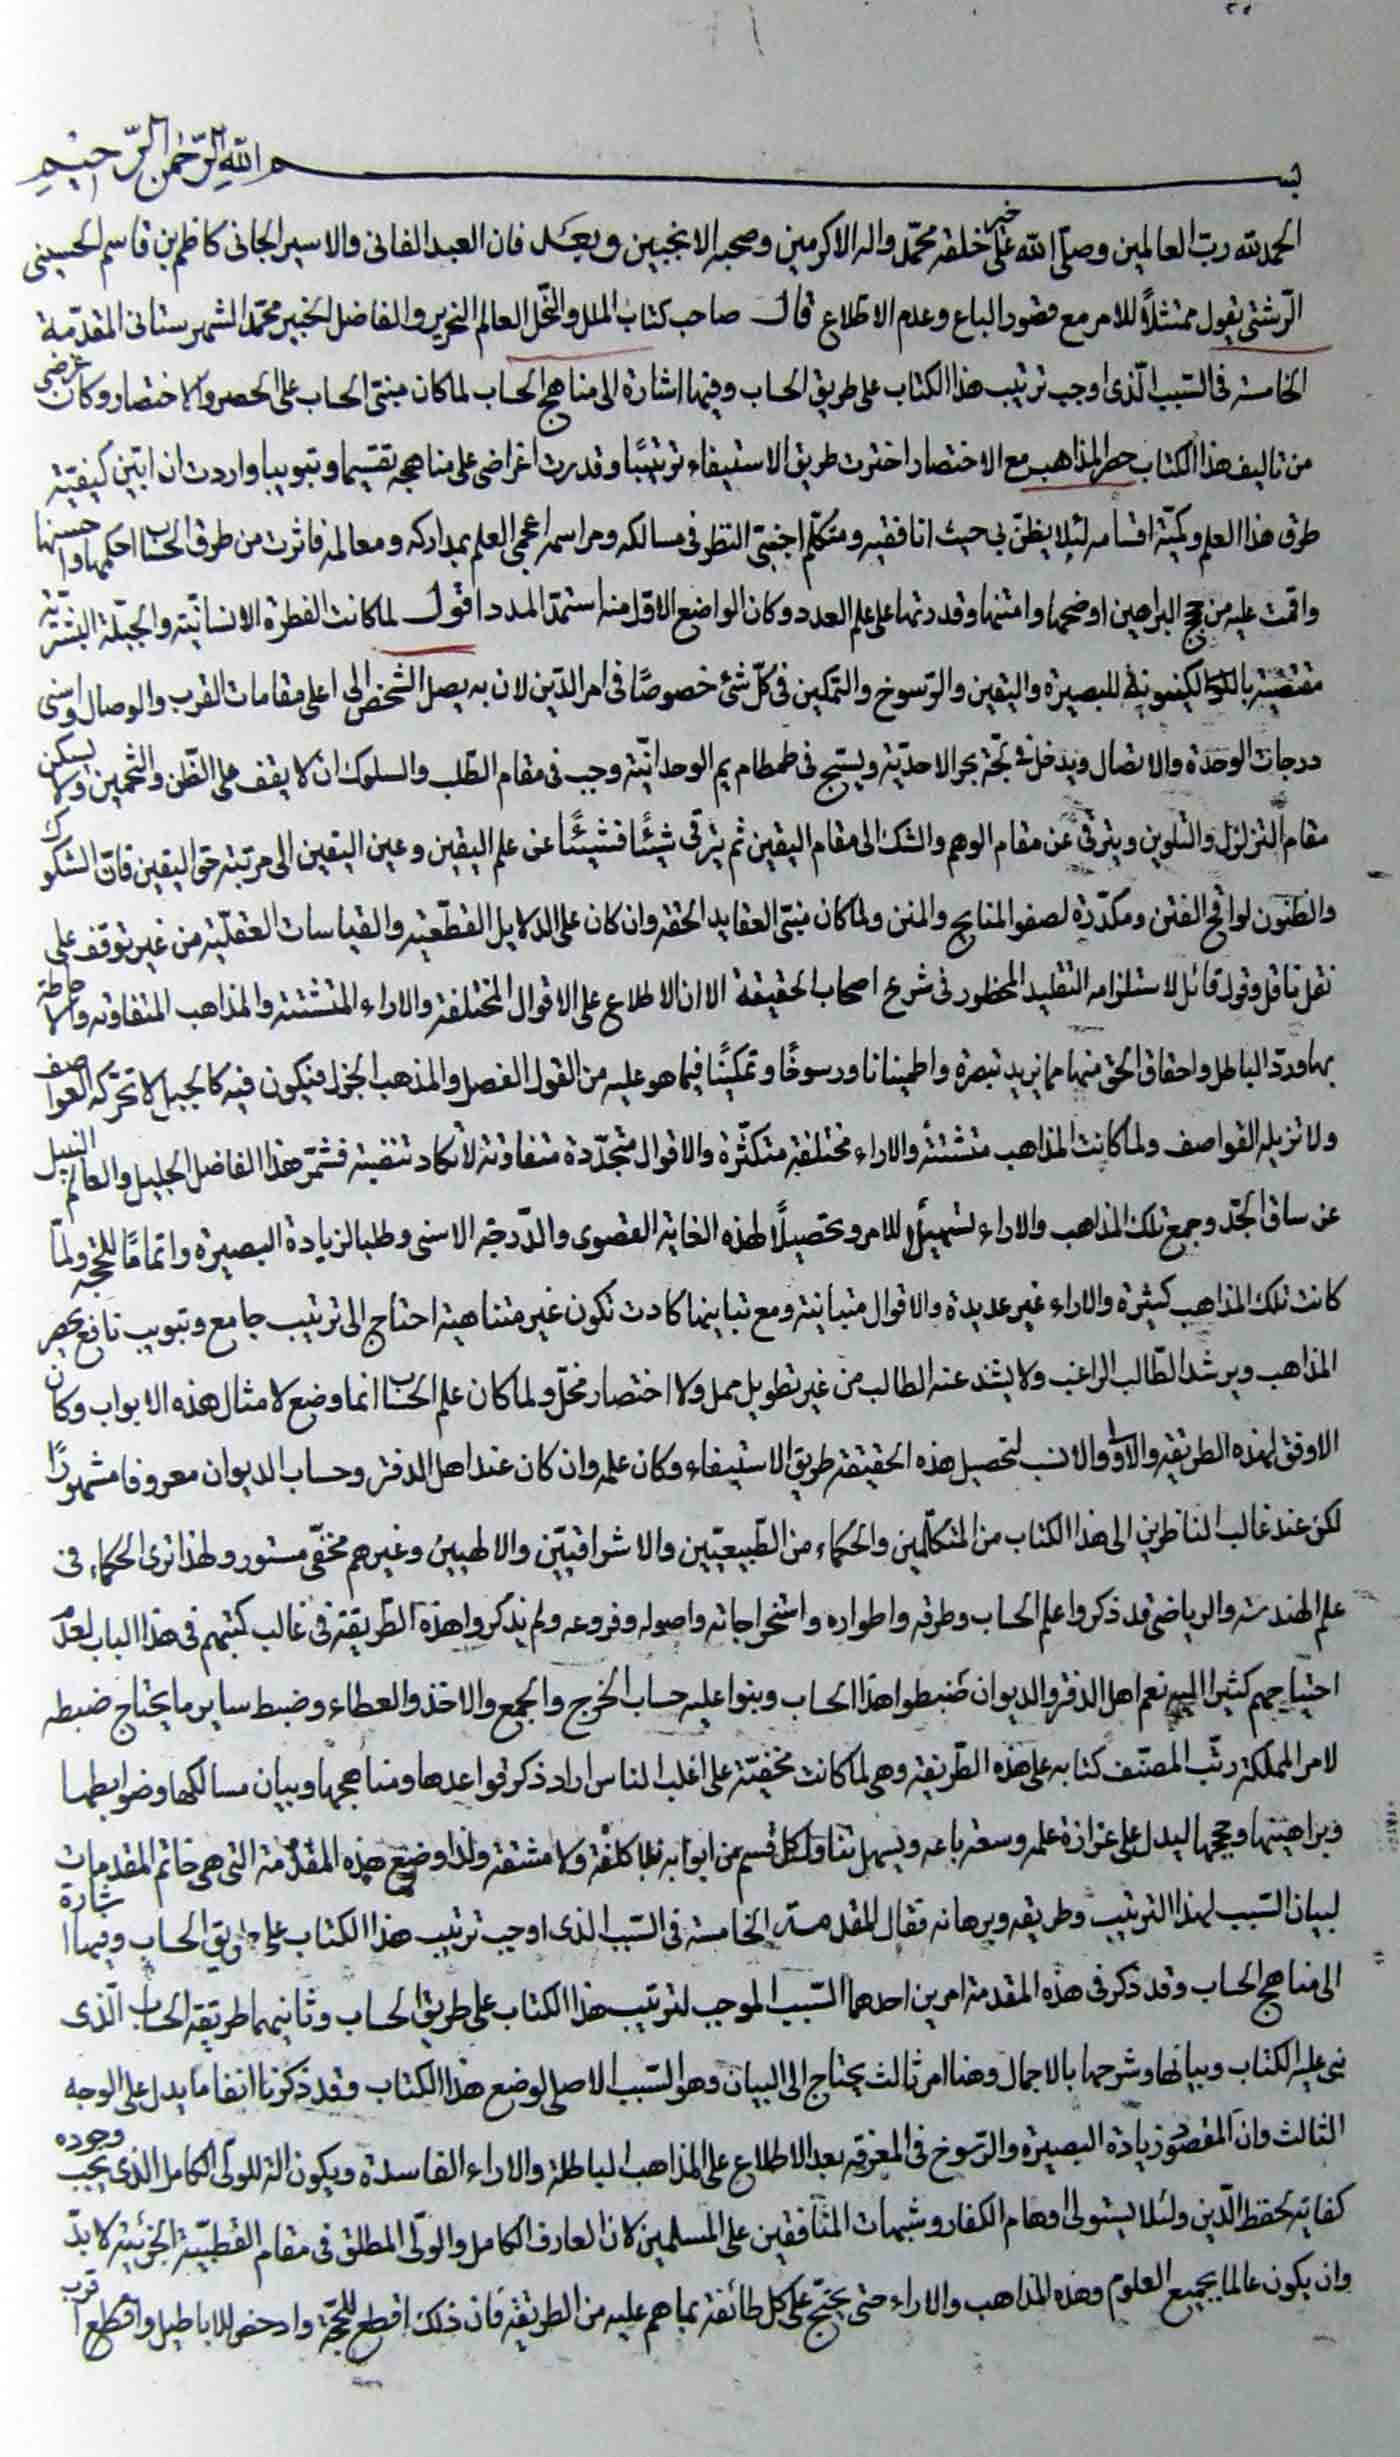 بسم الله الرحمن الرحيم
الحمد لله رب العالمين وصلى الله على خير خلقه محمد واله الاكرمين وصحبه الانجبين وبعد فان العبد الفانى والاسير الجانى كاظم بن قاسم الحسينى
الرشتى يقول ممتثلاً للامر مع قصور الباع وعدم الاطلاع قال صاحب كتاب الملل والنحل العالم النحرير والفاضل الخبير محمد الشهرستانى المقدمة
الخامسة فى السبب الذى اوجب ترتيب هذا الكتاب على طريق الحساب وفيها اشارة الى مناهج الحساب لما كان مبنى الحساب على الحصر والاختصار وكان غرضى
من تاليف هذا الكتاب حصر المذاهب مع الاختصار اخترت طريق الاستيفاء ترتيبًا وقدرت اغراضى على مناهجه تقسيما وتبويبا واردت ان ابين كيفية
طرق هذا العلم وكمية اقسامه لئلا يظن بى حيث انا فقيه ومتكلم اجنبى النظر فى مسالكه ومراسمه اعجمى العلم بمداركه ومعالمه فاثرت من طرق الحساب احكمها واحسنها
واقمت عليه من حجج البراهين اوضحها وامتنها وقدرتها على علم العدد وكان الواضع الاول منه استمد المدد اقول لما كانت الفطرة الانسانية والجبلة البشرية
مقتضية الكينونة للبصيرة واليقين والرسوخ والتمكين فى كل شئ خصوصًا فى امر الدين لان به يصل الشخص الى اعلى مقامات القرب والوصال واسنى
درجات الوحدة والاتصال ويدخل فى لجة بحر الاحدية ويسبح فى طمطام يم الوحدانية وجب فى مقام الطلب والسلوك ان لا يقف على الظن والتخمين ولا يسكن
مقام التزلزل والتلوين ويترقى عن مقام الوهم والشك الى مقام اليقين ثم يترقى شيئًا فشيئًا عن علم اليقين وعين اليقين الى مرتبة حق اليقين فان الشكوك
والظنون لواقح الفتن ومكدرة لصفو المنايح والمنن ولما كان مبنى العقايد الحقة وان كان على الدلايل القطعية والقياسات العقلية من غير توقف على
نقل ناقل وقول قائل لاستلزامه التقليد المحظور فى شرع اصحاب الحقيقة الا ان الاطلاع على الاقوال المختلفة والاراء المتشتتة والمذاهب المتفاوتة والاحاطة
بها ورد الباطل واحقاق الحق منها مما يزيد تبصرة واطمينانا ورسوخًا وتمكينًا فيما هو عليه من القول الفصل والمذهب الجزل فيكون فيه كالجبل لا تحركه العواصف
ولا تزيله القواصف ولما كانت المذاهب متشتتة والاراء مختلفة متكثرة والاقوال متجددة متفاوتة لا تكاد تنضبط فشمر هذا الفاضل الجليل والعالم النبيل
عن ساق الجد وجمع تلك المذاهب والاراء تسهيلاً للامر وتحصيلاً لهذه الغاية القصوى والدرجة الاسنى وطلبا لزيادة البصيرة واتمامًا للحجة ولما
كانت تلك المذاهب كثيرة والاراء غير عديدة والاقوال متباينة ومع تباينها كادت تكون غير متناهية احتاج الى ترتيب جامع وتبويب نافع يحصر
المذاهب ويرشد الطالب الراغب ولا يشذ عنه الطالب من غير تطويل ممل ولا اختصار مخل ولما كان علم الحساب انما وضع لامثال هذه الابواب وكان
الاوفق بهذه الطريقة والاولى والانسب لتحصيل هذه الحقيقة طريق الاستيفاء وكان علمه وان كان عند اهل الدفتر وحساب الديوان معروفا مشهورًا
لكن عند غالب الناظرين الى هذا الكتاب من المتكلمين والحكماء من الطبيعيين والاشراقيين والالهيين وغيرهم مخفى مستور ولهذا ترى الحكماء فى
علم الهندسة والرياضى قد ذكروا علم الحساب وطرقه واطواره واستخراجاته واصوله وفروعه ولم يذكروا هذه الطريقة فى غالب كتبهم فى هذا الباب لعدم
احتياجهم كثيرا اليه نعم اهل الدفتر والديوان ضبطوا هذا الحساب وبنوا عليه حساب الخرج والجمع والاخذ والعطاء وضبط ساير ما يحتاج ضبطه
لامر المملكة رتب المصنف كتابه على هذه الطريقة وهى لما كانت مخفية على اغلب الناس اراد ذكر قواعدها ومناهجها وبيان مسالكها وضوابطها
وبراهينها وحججها ليدل على غزارة علمه وسعة باعه ويسهل تناول كل قسم من ابوابه بلا كلفة ولا مشقة ولذا وضع هذه المقدمة التى هى خاتم المقدمات
لبيان السبب لهذا الترتيب وطريقه وبرهانه فقال المقدمة الخامسة فى السبب الذى اوجب ترتيب هذا الكتاب على طريق الحساب وفيها اشارة
الى مناهج الحساب وقد ذكر فى هذه المقدمة امرين احدهما السبب الموجب لترتيب هذا الكتاب على طريق الحساب وثانيهما طريقة الحساب الذى
بنى عليه الكتاب وبيانها وشرحها بالاجمال وهنا امر ثالث يحتاج الى البيان وهو السبب الاصلى لوضع هذا الكتاب وقد ذكرنا انفا ما يدل على الوجه
الثالث وان المقصود زيادة البصيرة والرسوخ فى المعرفة بعد الاطلاع على المذاهب الباطلة والاراء الفاسدة ويكون الة للولى الكامل الذى يجب وجوده
كفاية لحفظ الدين ولئلا يستولى اوهام الكفار وشبهات المنافقين على المسلمين لان العارف الكامل والولى المطلق فى مقام القطبية الجزئية لا بد
وان يكون عالما بجميع العلوم وهذه المذاهب والاراء حتى يحتج على كل طائفة بما هم عليه من الطريقة فان ذلك اقطع للحجة وادحض للاباطيل واقطع